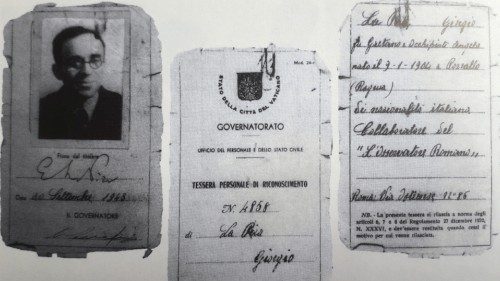 Firma del titolare
Data
Settembre 1943
IL GOVERNATORE
Mod. 26
STATO DELLA CITTÀ DEL VATICANO
GOVERNATORATO
UFFICIO DEL PERSONALE E DELLO STATO CIVILE
TESSERA PERSONALE DI RICONOSCIMENTO
N. 4858
di La Pira
Giorgio
La Pira Giorgio
fu Gaetano e Occhipinti
nato il 9-1-1904 a Pozzallo
(Ragusa)
di nazionalità italiana
Collaboratore del
"L'Osservatore Romano"
Roma Via
NB. - La presente tessera si rilascia a norma degli
articoli 6, 7 e 8 del Regolamento
N. XXXVI, e dev'essere restituita quando cessi il
motivo per cui venne rilasciata.